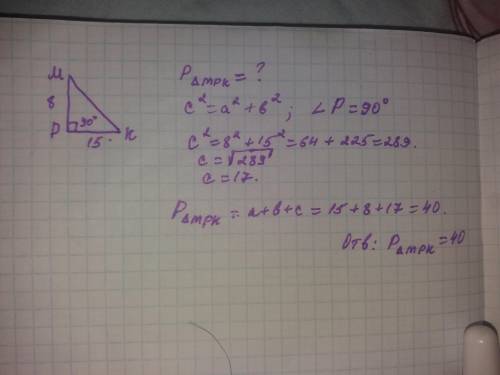 M
8
P 90°
15. K
P△MPK = ?
c² = a² + b² ; ∠P = 90°
c² = 8² + 15² = 64 + 225 = 289.
c = √289
c = 17.
P△MPK = a + b + c = 15 + 8 + 17 = 40.
Отв: P△MPK = 40